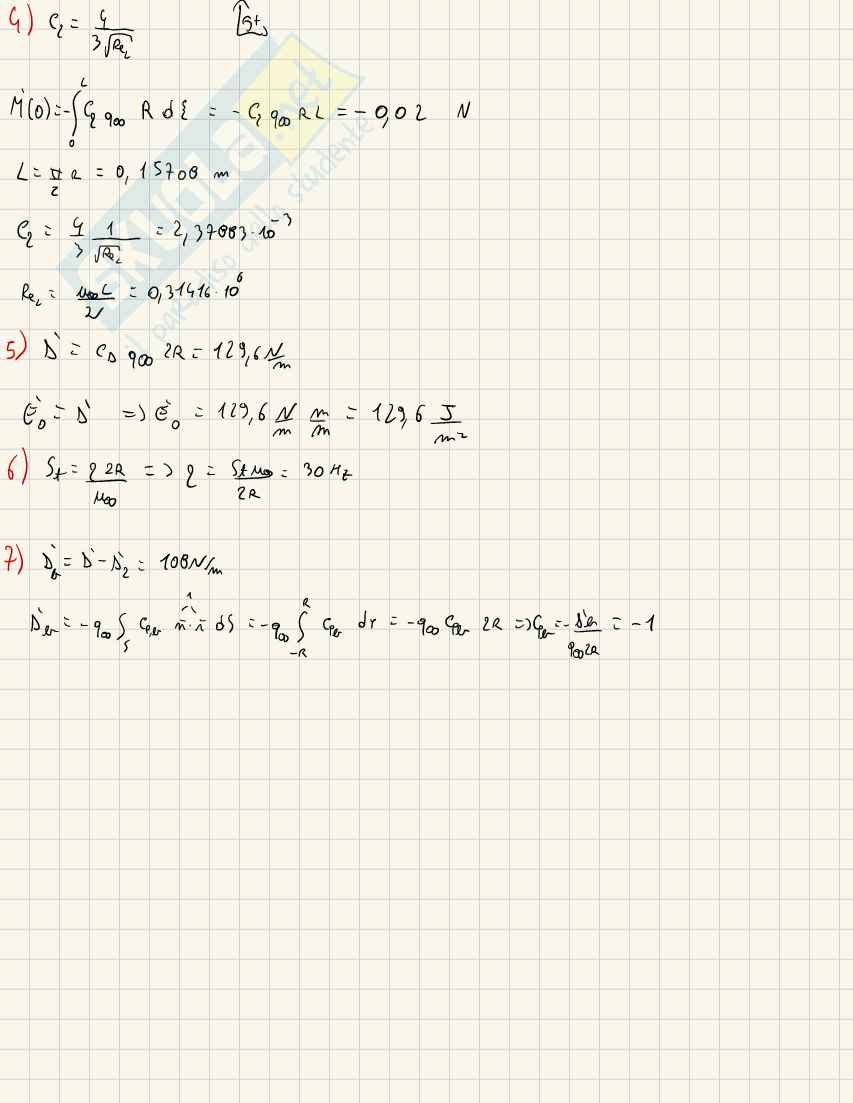 4) C_τ = 4 / (3√Re_L) 
M'(0) = -∫₀ᴸ C_τ q∞ R dξ = - C_τ q∞ R L = - 0,02 N
L = π/2 R = 0,15708 m
C_τ = 4/3 1/√Re_L = 2,37883·10⁻³
Re_L = u∞ L / ν = 0,31416·10⁶
5) D' = C_D q∞ 2R = 129,6 N/m
Ė'_0 = D' => Ė'_0 = 129,6 N/m m/m = 129,6 J/m²
6) St = η 2R / u∞ => η = St u∞ / 2R = 30 Hz
7) D'_b = D' - D'_2 = 108 N/m
D'_b = - q∞ ∫_S C_pb n̄·n̄ dS = - q∞ ∫_-R^R C_pb dr = - q∞ C_pb 2R => C_pb = - D'_b / q∞ 2R = - 1
SKUOLA.net
il paradiso dello studente